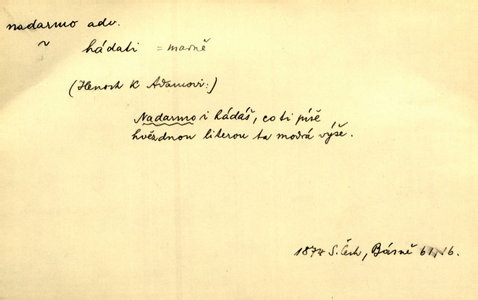 nadarmo adv.
~ hádati = marně
(Henoch k Adamovi:)
Nadarmo i hádáš, co ti píše
hvězdnou literou ta modrá výše.
1874 S. Čech, Básně 61, 16.